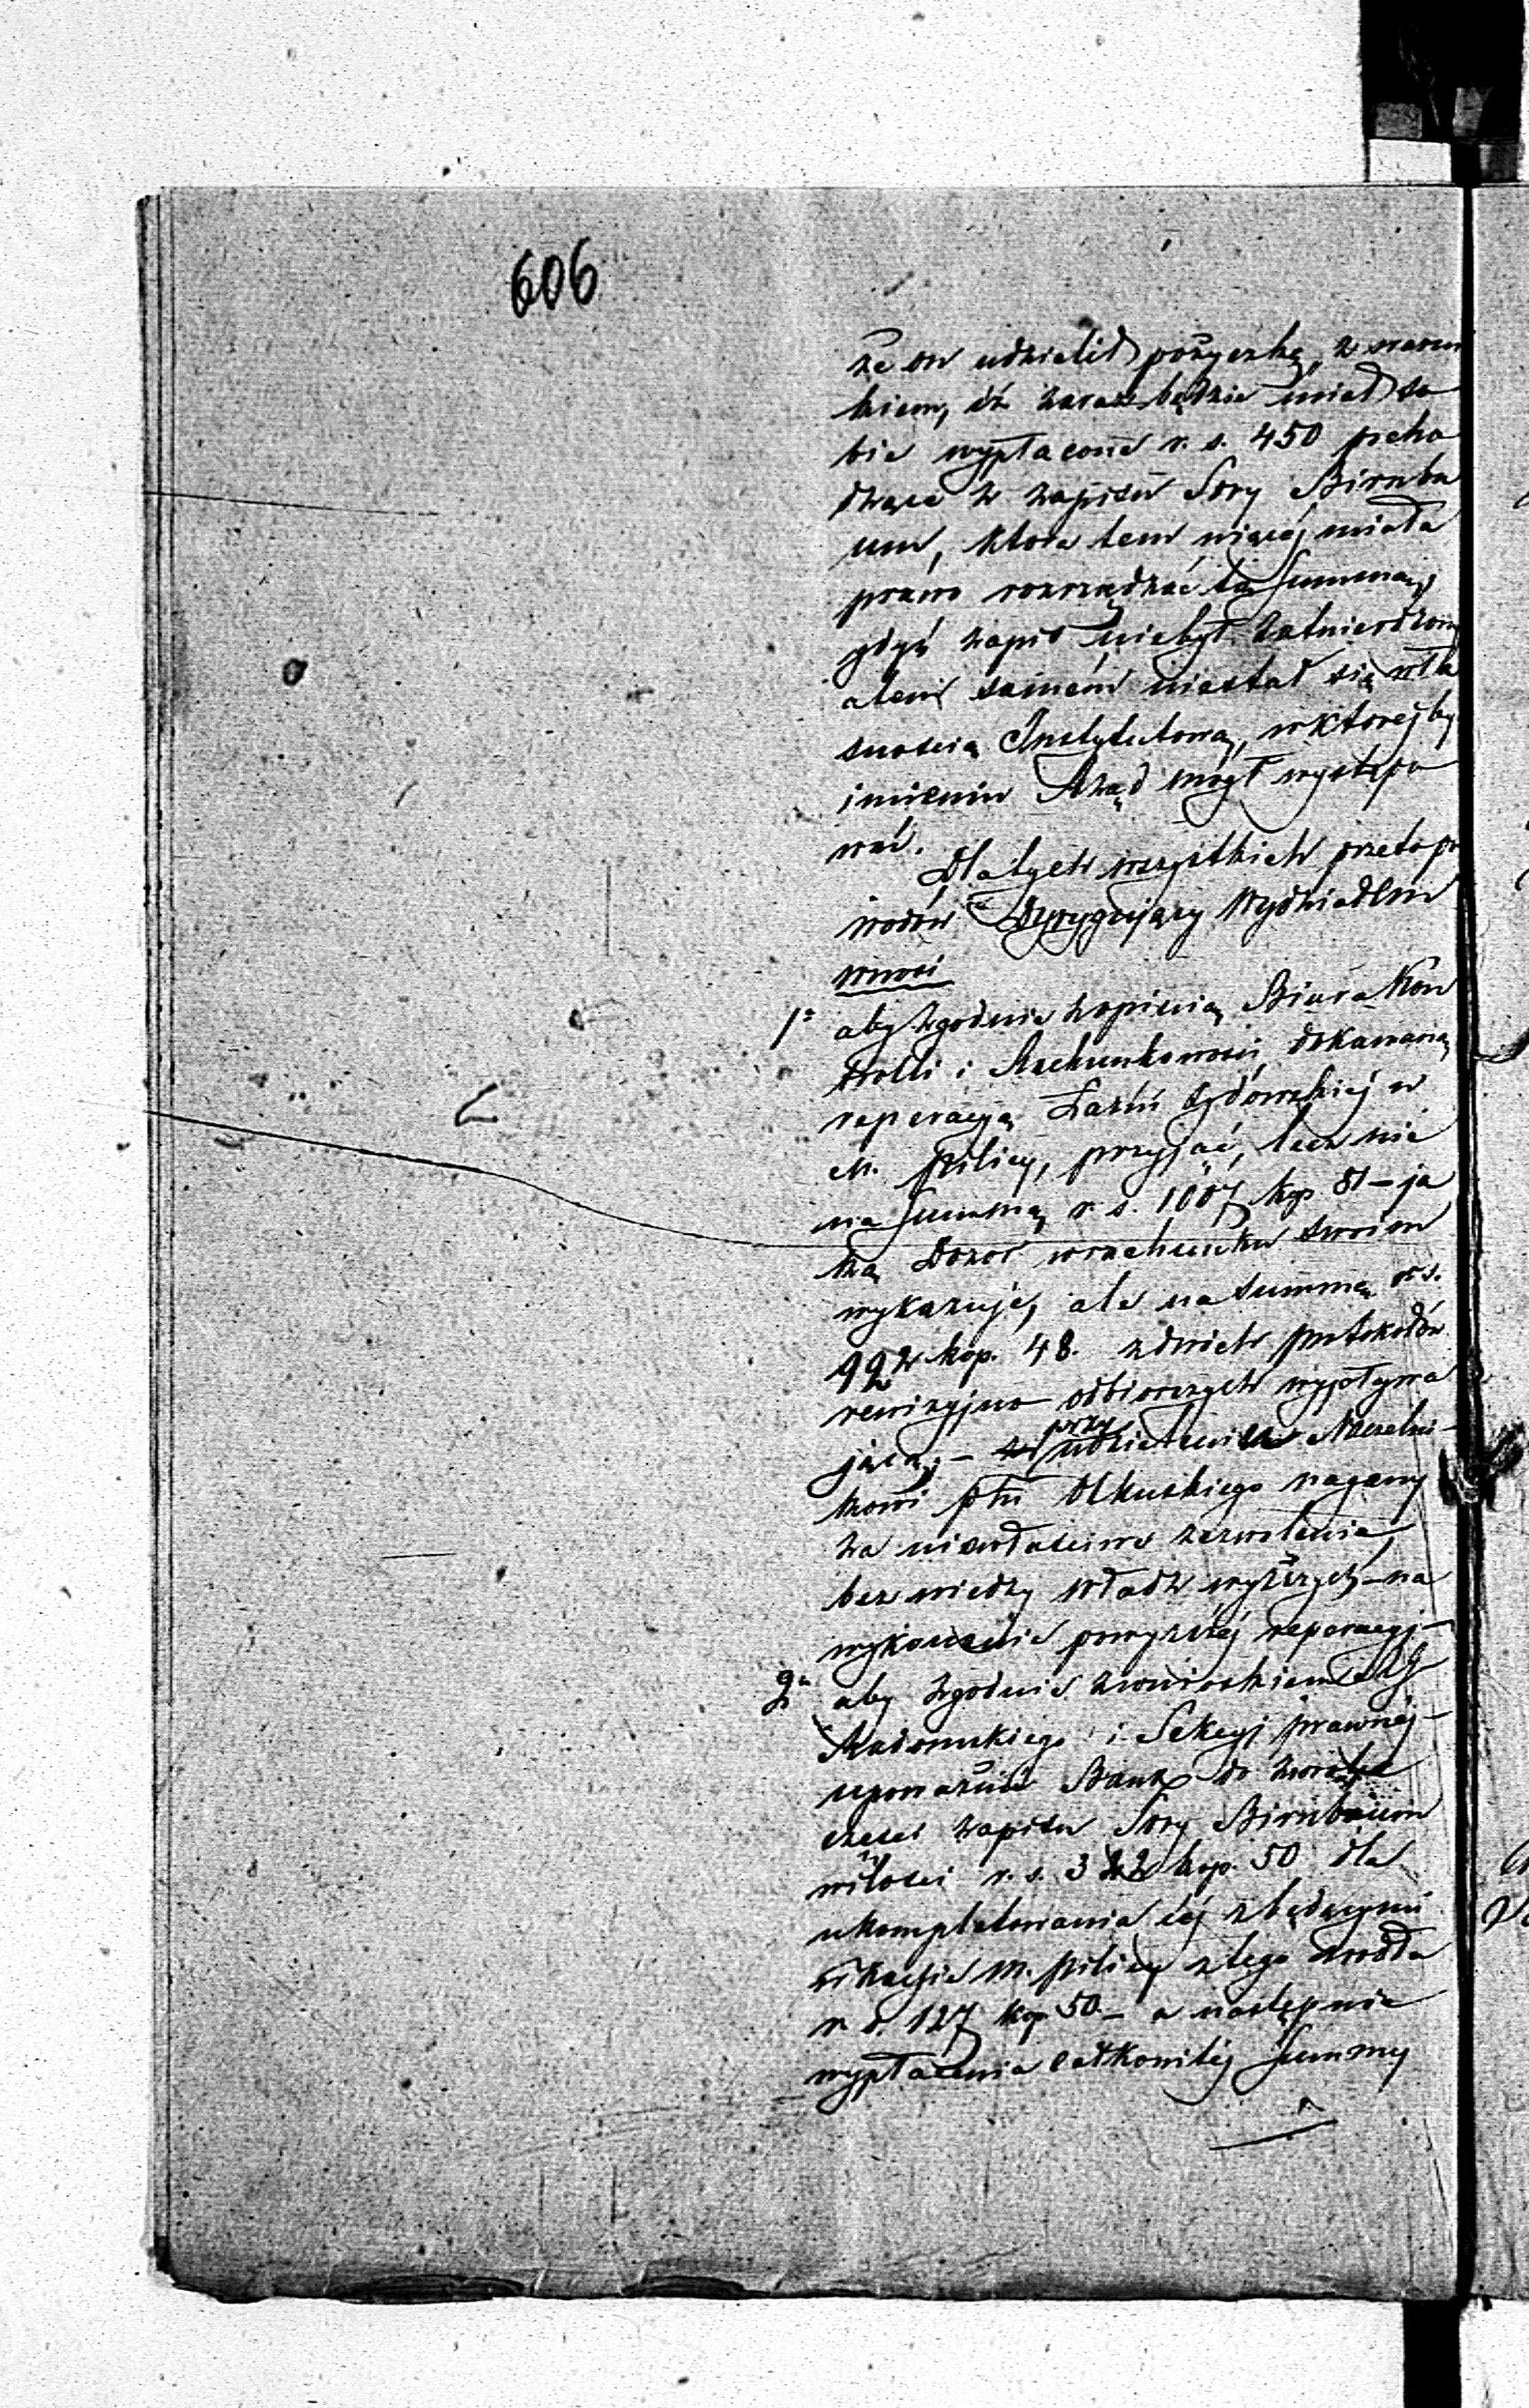 606
że on udzielił pożyczkę, z warun
kiem, iż zaraz będzie miał so
bie wypłacone r. s. 450 pocho
dzące z zapisu Sory Birnba
um, która tem więcej miała
prawo rozrządzać tą Summą,
gdyż zapis niebył zatwierdzony
a tem samém niestał się wła
snością Instytutową, w której by
imieniu Rząd mógł wystepo
wać.
Dla tych wszystkich przeto po
wodów Dyrygujący Wydziałem
wnosi
1º aby zgodnie z opinią Biura Kon
trolli i Rachunkowości, dokonaną
reperacyą Łaźni żydowskiéj w
m. Pilicy, przyjąć, lecz nie
na Summę r. s. 1007 kop 81 – ja
ką Dozór w rachunku swoim
wykazuje, ale na summę r. s.
992 kop. 48. z dwóch protokołów
rewizyjno-odbiorczych wypływa
jącą, – przy udzieleniu Naczelni-
kowi ptu Olkuskiego nagany
za niewłaściwe zezwolenie,
bez wiedzy władz wyższych – na
wykonanie powyższéj reperacyi –
2º aby zgodnie z wnioskiem RG
Radomskiego i Sekcyi prawnéj –
upoważnić Bank do zwrotu
części zapisu Sory Birnbaum
w ilości r. s. 322 kop. 50 dla
ukompletowania téj z będącymi
w kassie m. Pilicy z tego źródła
r. s. 127 kop 50 – a następnie
wypłacenia całkowitéj Summy